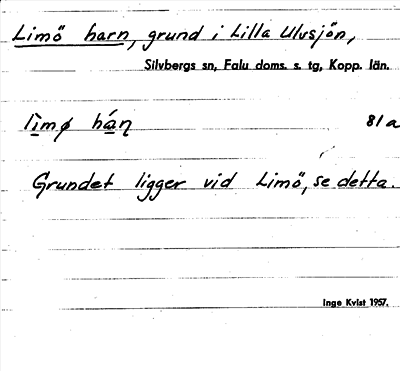 Limö harn, grund i Lilla Ulvsjön,
Silvbergs sn, Falu doms. s. tg, Kopp. län.
lìmø háꞃ 81a
Grundet ligger vid Limö, se detta.
Inge Kvist 1957.